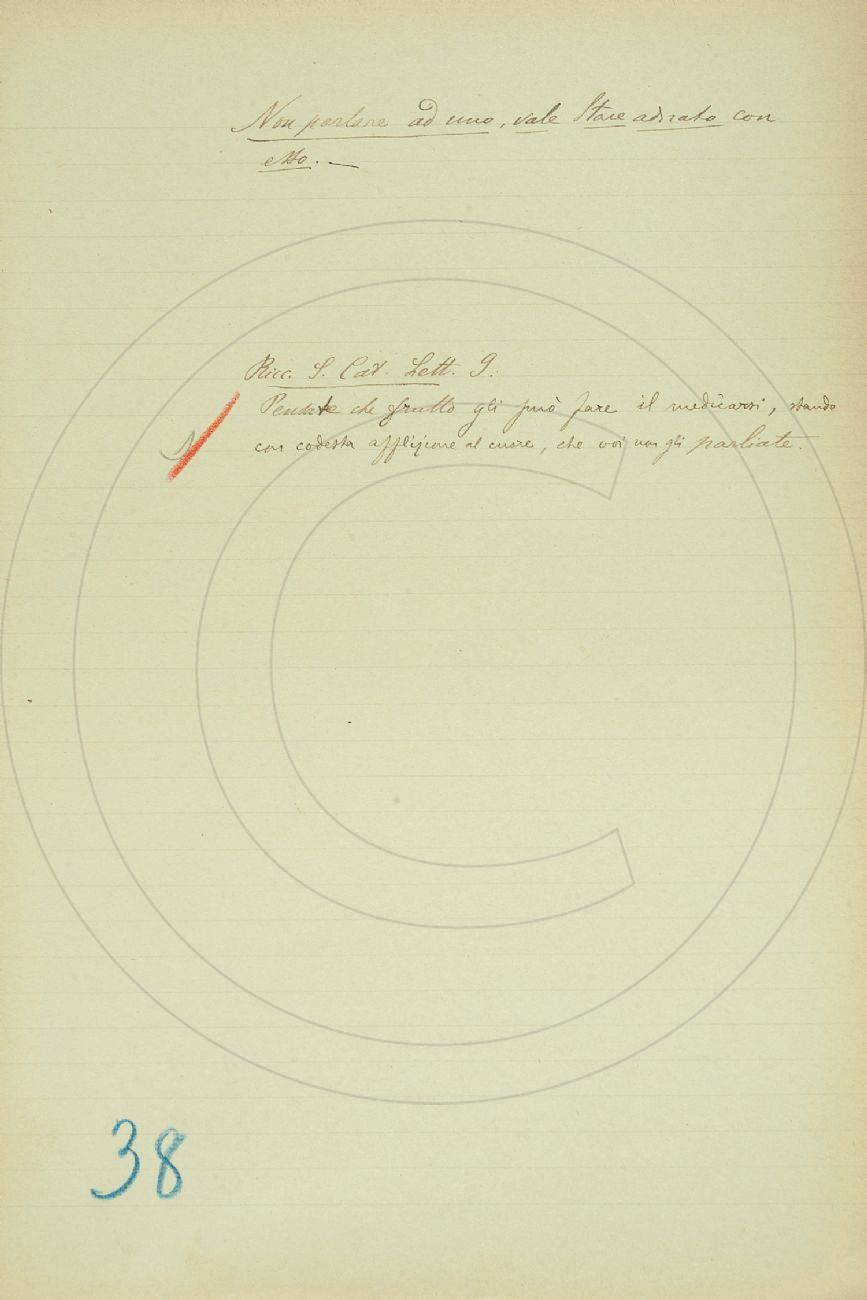 Non parlare ad uno, vale Stare adirato con
esso. —
Ricc. S. Cat. Lett. 9.:
Pensate che frutto gli può fare il medicarsi, stando
con codesta afflizione al cuore, che voi non gli parliate.
38